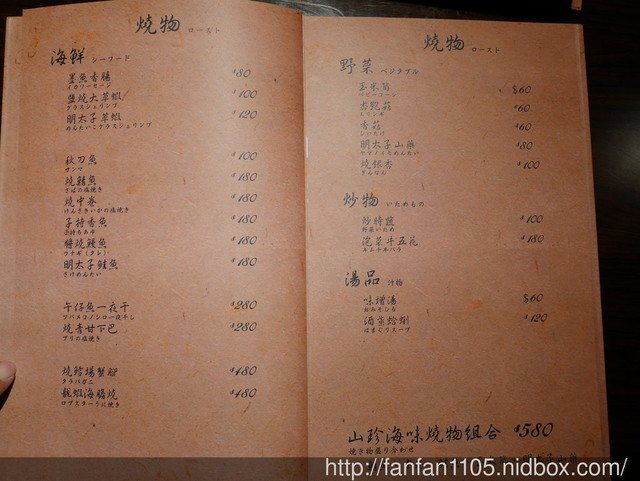 燒物 ロースト
海鮮 シーフード
墨魚香腸 $80
イカソーセージ
鹽燒大草蝦 $100
ブラスシュリンプ
明太子草蝦 $120
めんたいこブラスシュリンプ
秋刀魚 $100
サンマ
燒鯖魚 $180
さばの塩焼き
燒中卷 $180
けんさきいかの塩焼き
子持香魚 $180
子持ちあゆ
鰻魚 $180
ウナギ(タレ)
明太子鮭魚 $180
さけめんたい
午仔魚一夜干 $280
ツバメコノシロ一夜干し
燒青甘下巴 $280
ブリの塩焼き
燒鱈場蟹腳 $480
タラバガニ
龍蝦海膽燒 $480
ロブスターうに焼き
燒物 ロースト
野菜 ベジタブル
玉米筍 $60
ベビーコーン
杏鮑菇 $60
エリンギ
香菇 $60
しいたけ
明太子山藥 $80
ヤマノイモめんたい
燒銀杏 $100
ぎんなん
炒物 いためもの
炒時蔬 $100
野菜いため
泡菜牛五花 $180
キムチ牛バラ
湯品 汁物
味增湯 $60
おみそしる
酒蒸蛤蜊 $120
はまぐりスープ
山珍海味燒物組合 $580
焼き物盛り合わせ
明太子山藥
http://fanfan1105.nidbox.com/